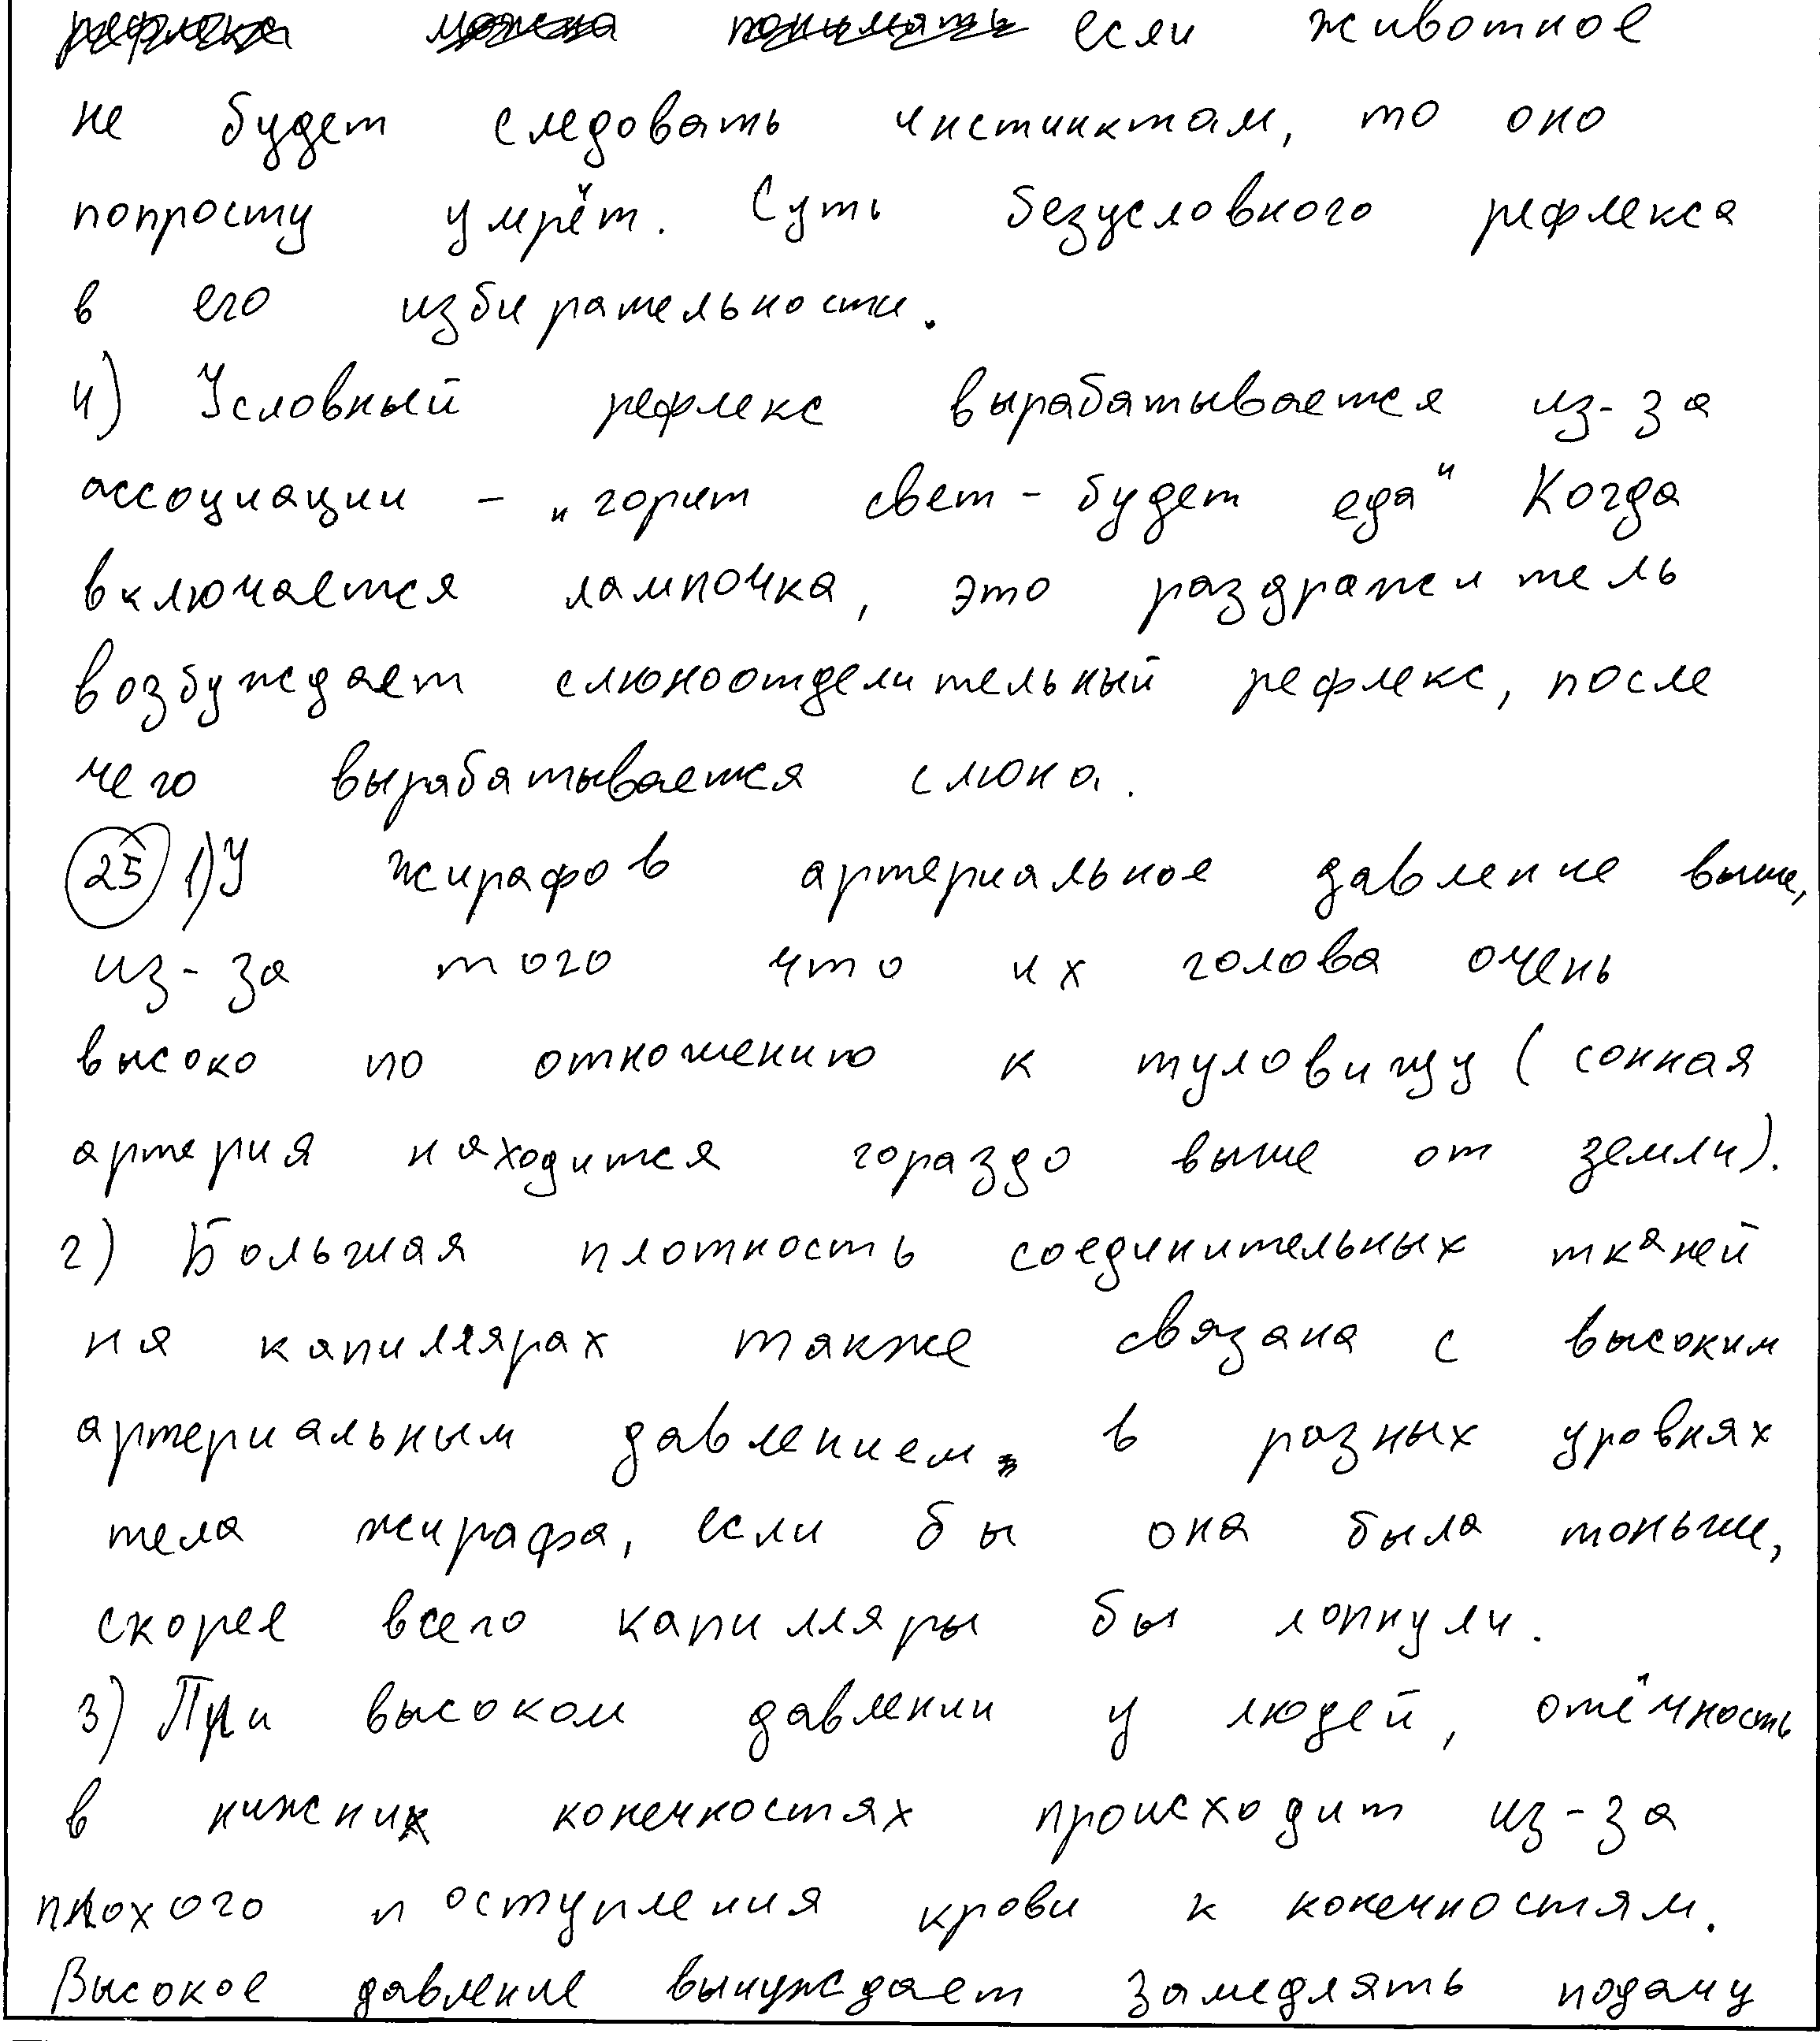 рефлекса можно понимать если животное
не будет следовать инстинктам, то оно
попросту умрёт. Суть безусловного рефлекса
в его избирательности.
4) Условный рефлекс вырабатывается из-за
ассоциации - „горит свет - будет еда" Когда
включается лампочка, это раздражитель
возбуждает слюноотделительный рефлекс, после
чего вырабатывается слюна.
25 1) У жирафов артериальное давление выше,
из-за того что их голова очень
высоко по отношению к туловищу (сонная
артерия находится гораздо выше от земли).
2) Большая плотность соединительных тканей
на капиллярах также связана с высоким
артериальным давлением, в разных уровнях
тела жирафа, если бы она была тоньше,
скорее всего капилляры бы лопнули.
3) При высоком давлении у людей, отёчность
в нижних конечностях происходит из-за
плохого поступления крови к конечностям.
Высокое давление вынуждает замедлять подачу